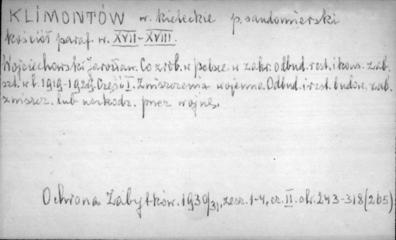 KLIMONTÓW w. kieleckie p. sandomierski
kościół paraf. w. XVII-XVIII.
Wojciechowski Jarosław. Co zrob. w Polsce w zakr. odbud. rest. i kons. zab.
szt. w l. 1919-1929. Część I. Zniszczenia wojenne. Odbud. i rest. budow. zab.
zniszcz. lub uszkodz. przez wojnę.
Ochrona Zabytków. 1930/31, zesz. 1-4, cz. II. str. 243-318 (265)